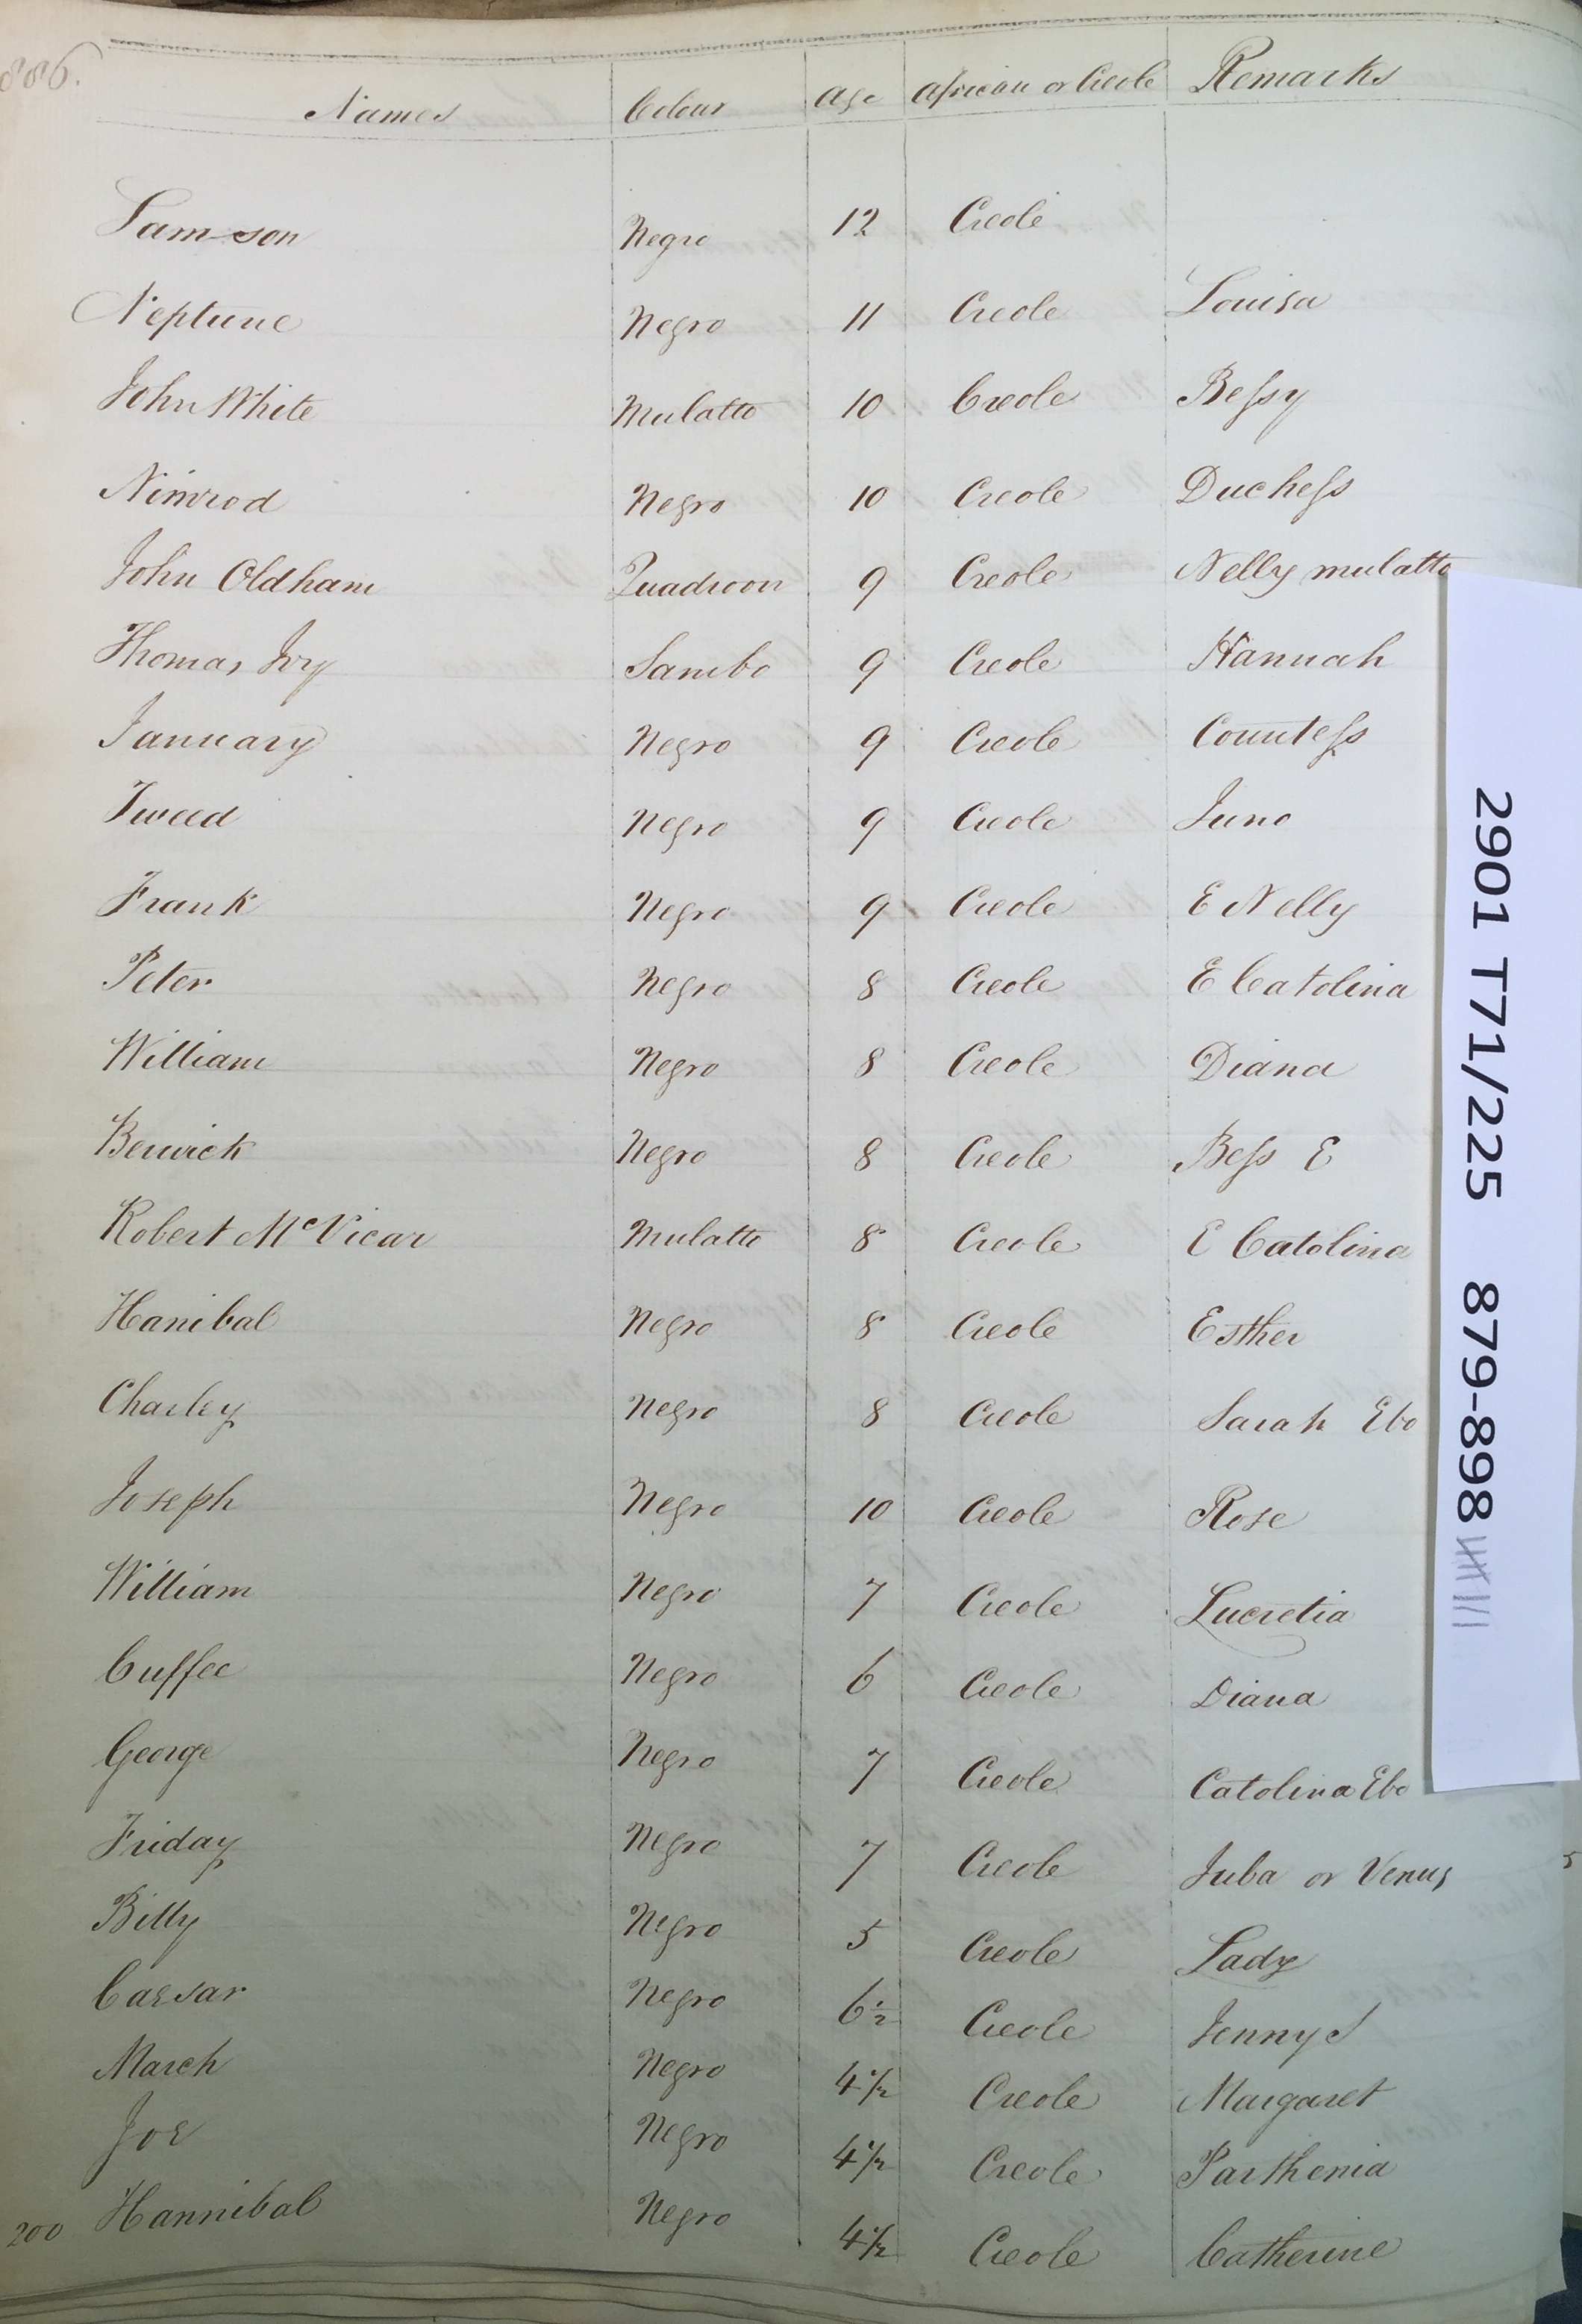 886.
Names Colour Age African or Creole Remarks
Samson Negro 12 Creole
Neptune Negro 11 Creole Louisa
John White Mulatto 10 Creole Bessy
Nimrod Negro 10 Creole Duchess
John Oldham Quadroon 9 Creole Nelly mulatto
Thomas Ivy Sambo 9 Creole Hannah
January Negro 9 Creole Countess
Tweed Negro 9 Creole Juno
Frank Negro 9 Creole E Nelly
Peter Negro 8 Creole E Catolina
William Negro 8 Creole Diana
Berwick Negro 8 Creole Bess E
Robert McVicar Mulatto 8 Creole E Catolina
Hanibal Negro 8 Creole Esther
Charley Negro 8 Creole Sarah Ebo
Joseph Negro 10 Creole Rose
William Negro 7 Creole Lucretia
Cuffee Negro 6 Creole Diana
George Negro 7 Creole Catolina Ebo
Friday Negro 7 Creole Juba or Venus
Billy Negro 5 Creole Lady
Caesar Negro 6½ Creole Jenny S
March Negro 4½ Creole Margaret
Joe Negro 4½ Creole Parthenia
200 Hannibal Negro 4½ Creole Catherine
2901 T71/225 879-898